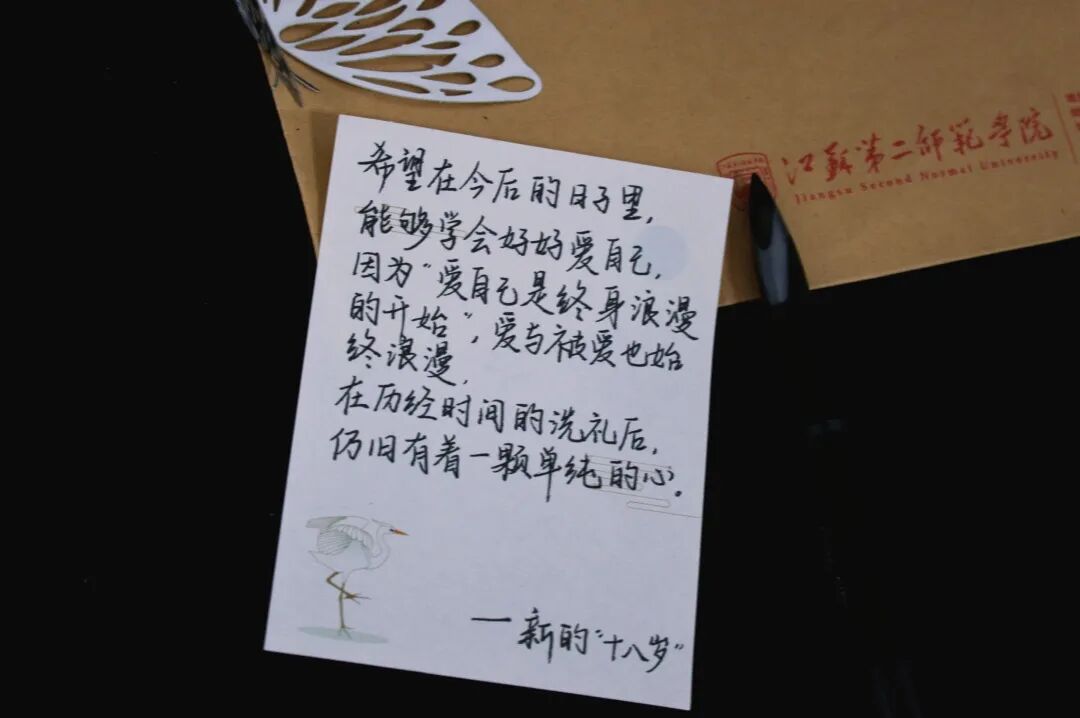 江苏第二师范学院
Jiangsu Second Normal University
希望在今后的日子里，
能够学会好好爱自己，
因为“爱自己是终身浪漫
的开始”，爱与被爱也始
终浪漫，
在历经时间的洗礼后，
仍旧有着一颗单纯的心。
一新的“十八岁”